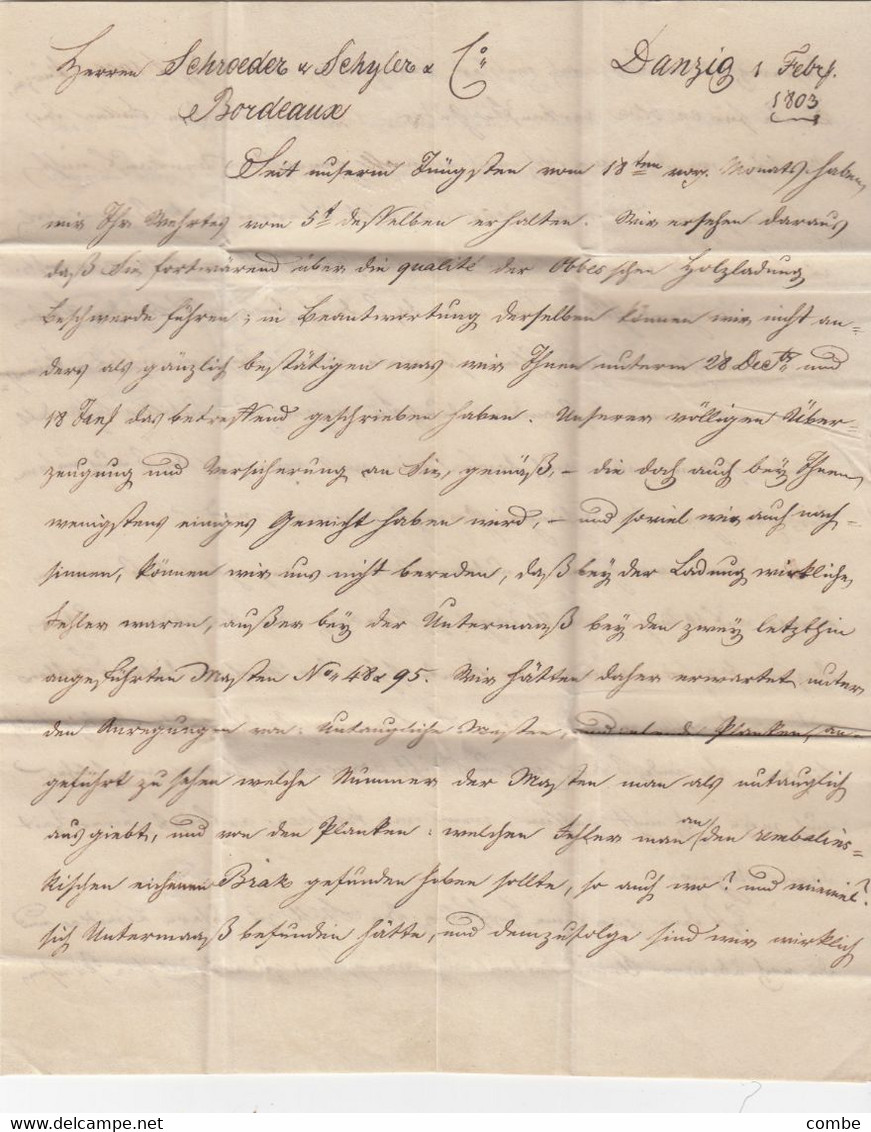 Herren Schroeder & Schyler & Co. Danzig 1 Febr.
Bordeaux 1803
Seit unserm Jüngsten vom 18ten vor. Monats haben
wir Ihr Wehrtes vom 5t desselben erhalten. Wir ersehen daraus
daß Sie fortwärend über die qualité der Obbes'schen Holzladung
Beschwerde führen; in Beantwortung derselben können wir nicht an-
ders als gänzlich bestätigen was wir Ihnen unterm 28 Decbr und
18 Jan das betreffend geschrieben haben. Unserer völligen Über-
zeugung und Versicherung an Sie, gemäß, – die doch auch bey Ihnen
wenigstens einiges Gewicht haben wird, – und soviel wir auch nach-
sinnen, können wir uns nicht bereden, daß bey der Ladung wirkliche
Fehler waren, außer bey der Untermaaß bey den zwey letzthin
angeführten Masten No 48 & 95. Wir hätten daher erwartet unter
den Anregungen von: Untaugliche Masten, Planken, an-
geführt zu sehen welche Nummer der Masten man als untauglich
ausgiebt, und von den Planken: welchen Fehler man an den
eichenen Brak gefunden haben sollte, so auch wo? und wieviel?
sich Untermaaß befunden hätte, und demzufolge sind wir wirklich
combe